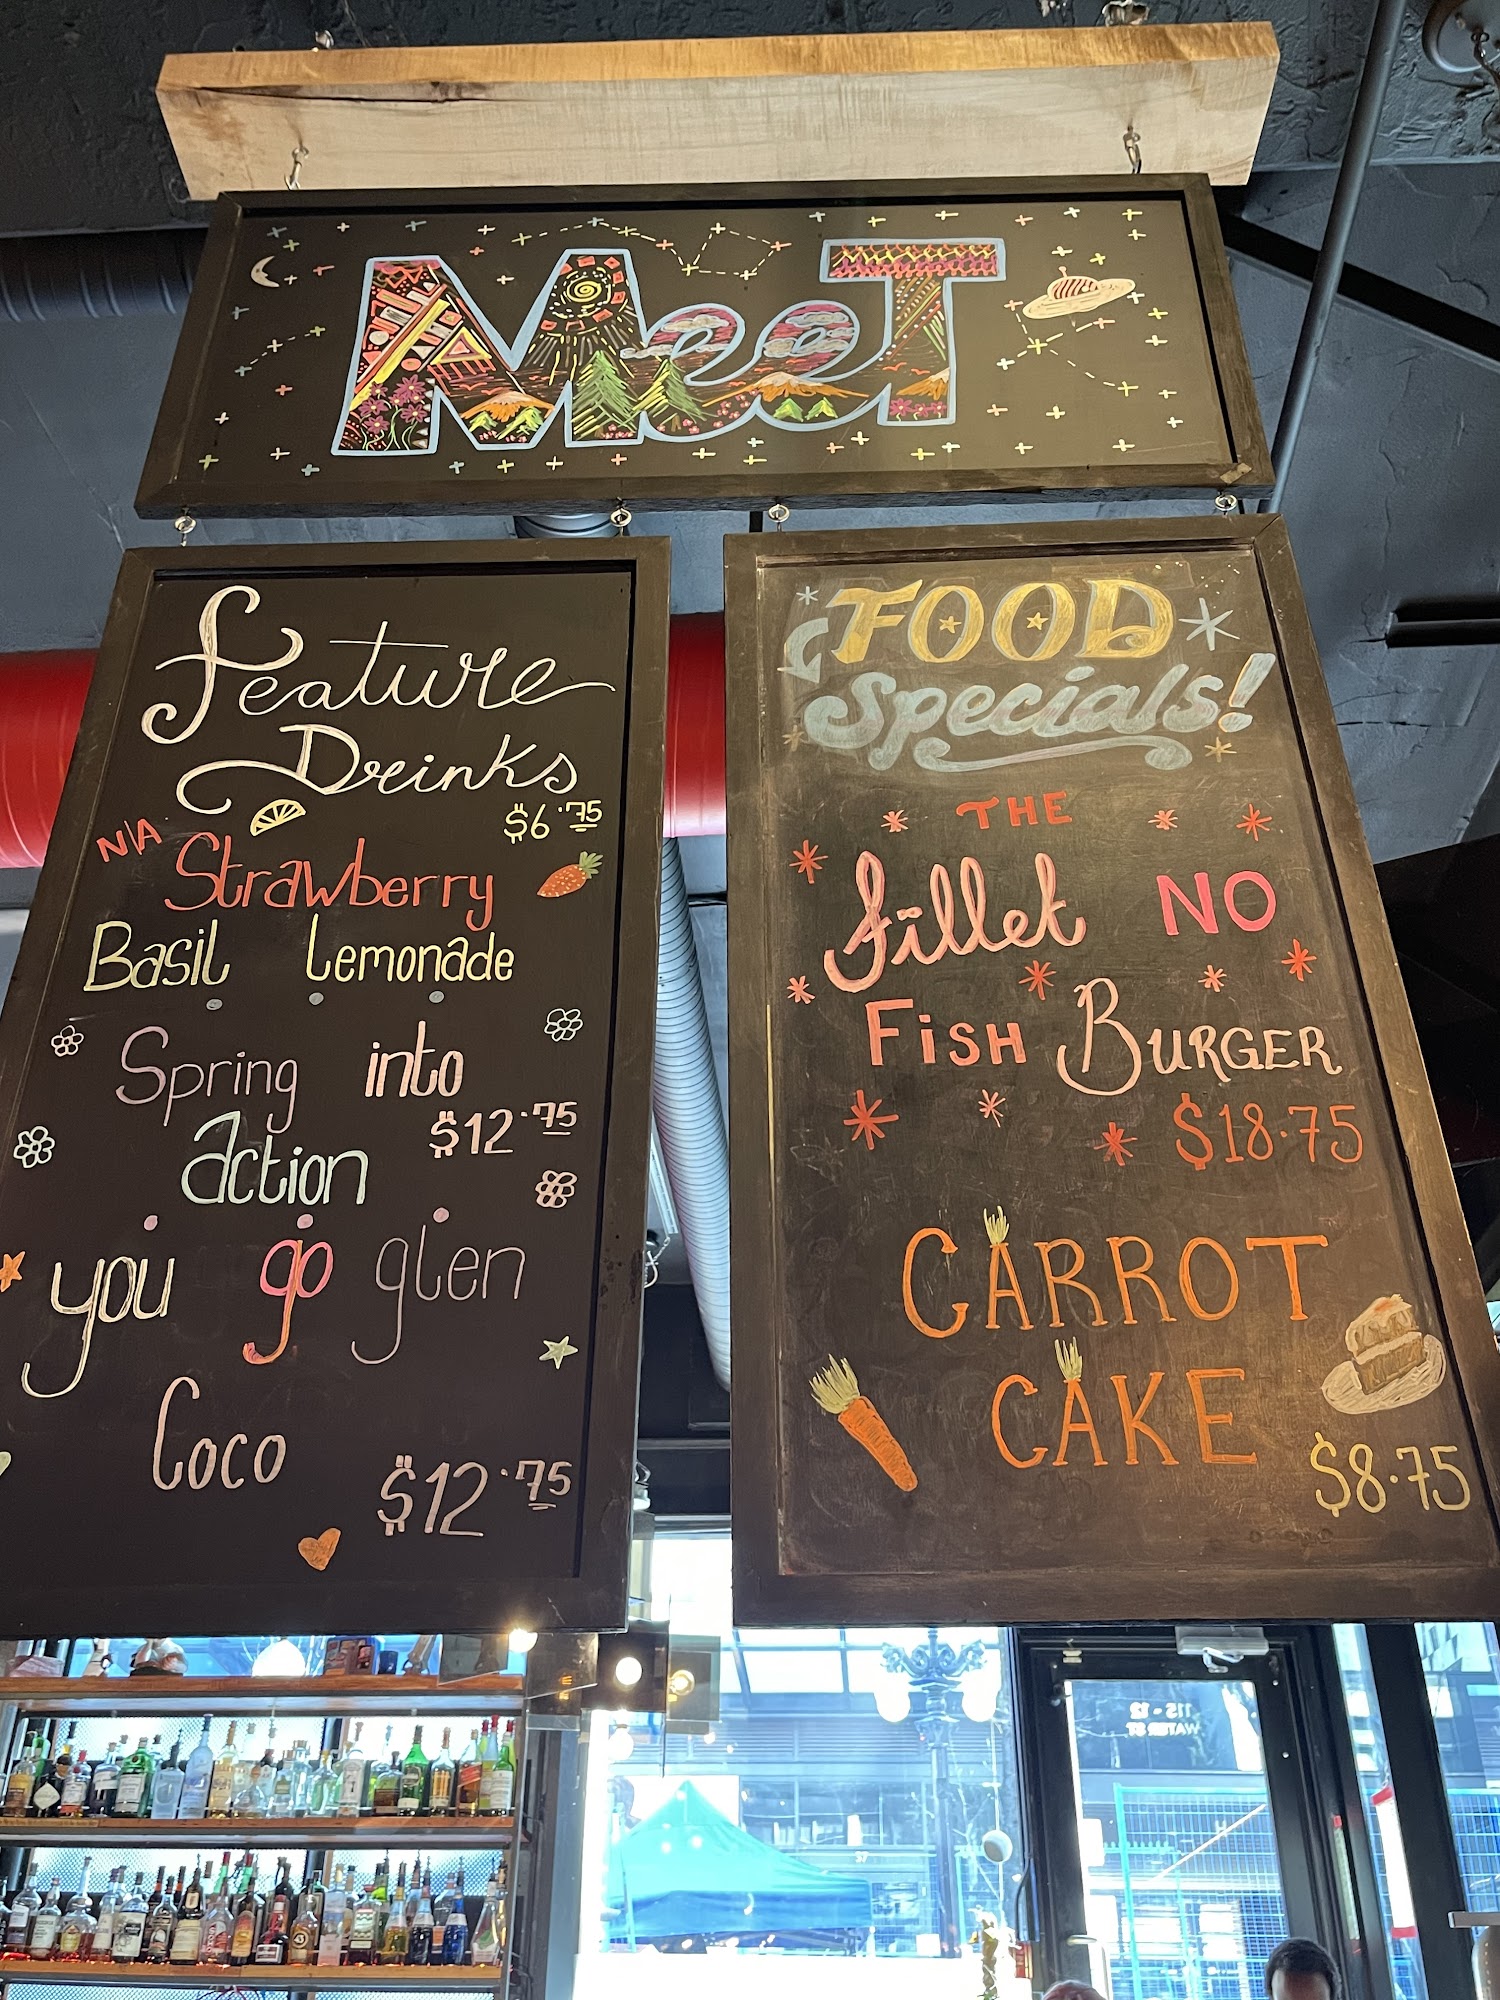 MeeT
Feature
Drinks
$6.75
N/A Strawberry
Basil Lemonade
Spring into
$12.75
action
you go glen
Coco
$12.75
FOOD
Specials!
THE
fillet NO
FISH BURGER
$18.75
CARROT
CAKE
$8.75
115 - 12
WATER ST
37